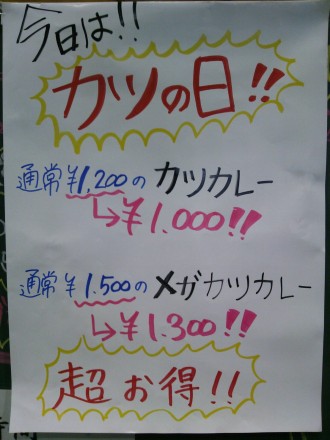 今日は!!
カツの日!!
通常¥1,200のカツカレー
↳¥1.000!!
通常¥1.500のメガカツカレー
↳¥1.300!!
超お得!!